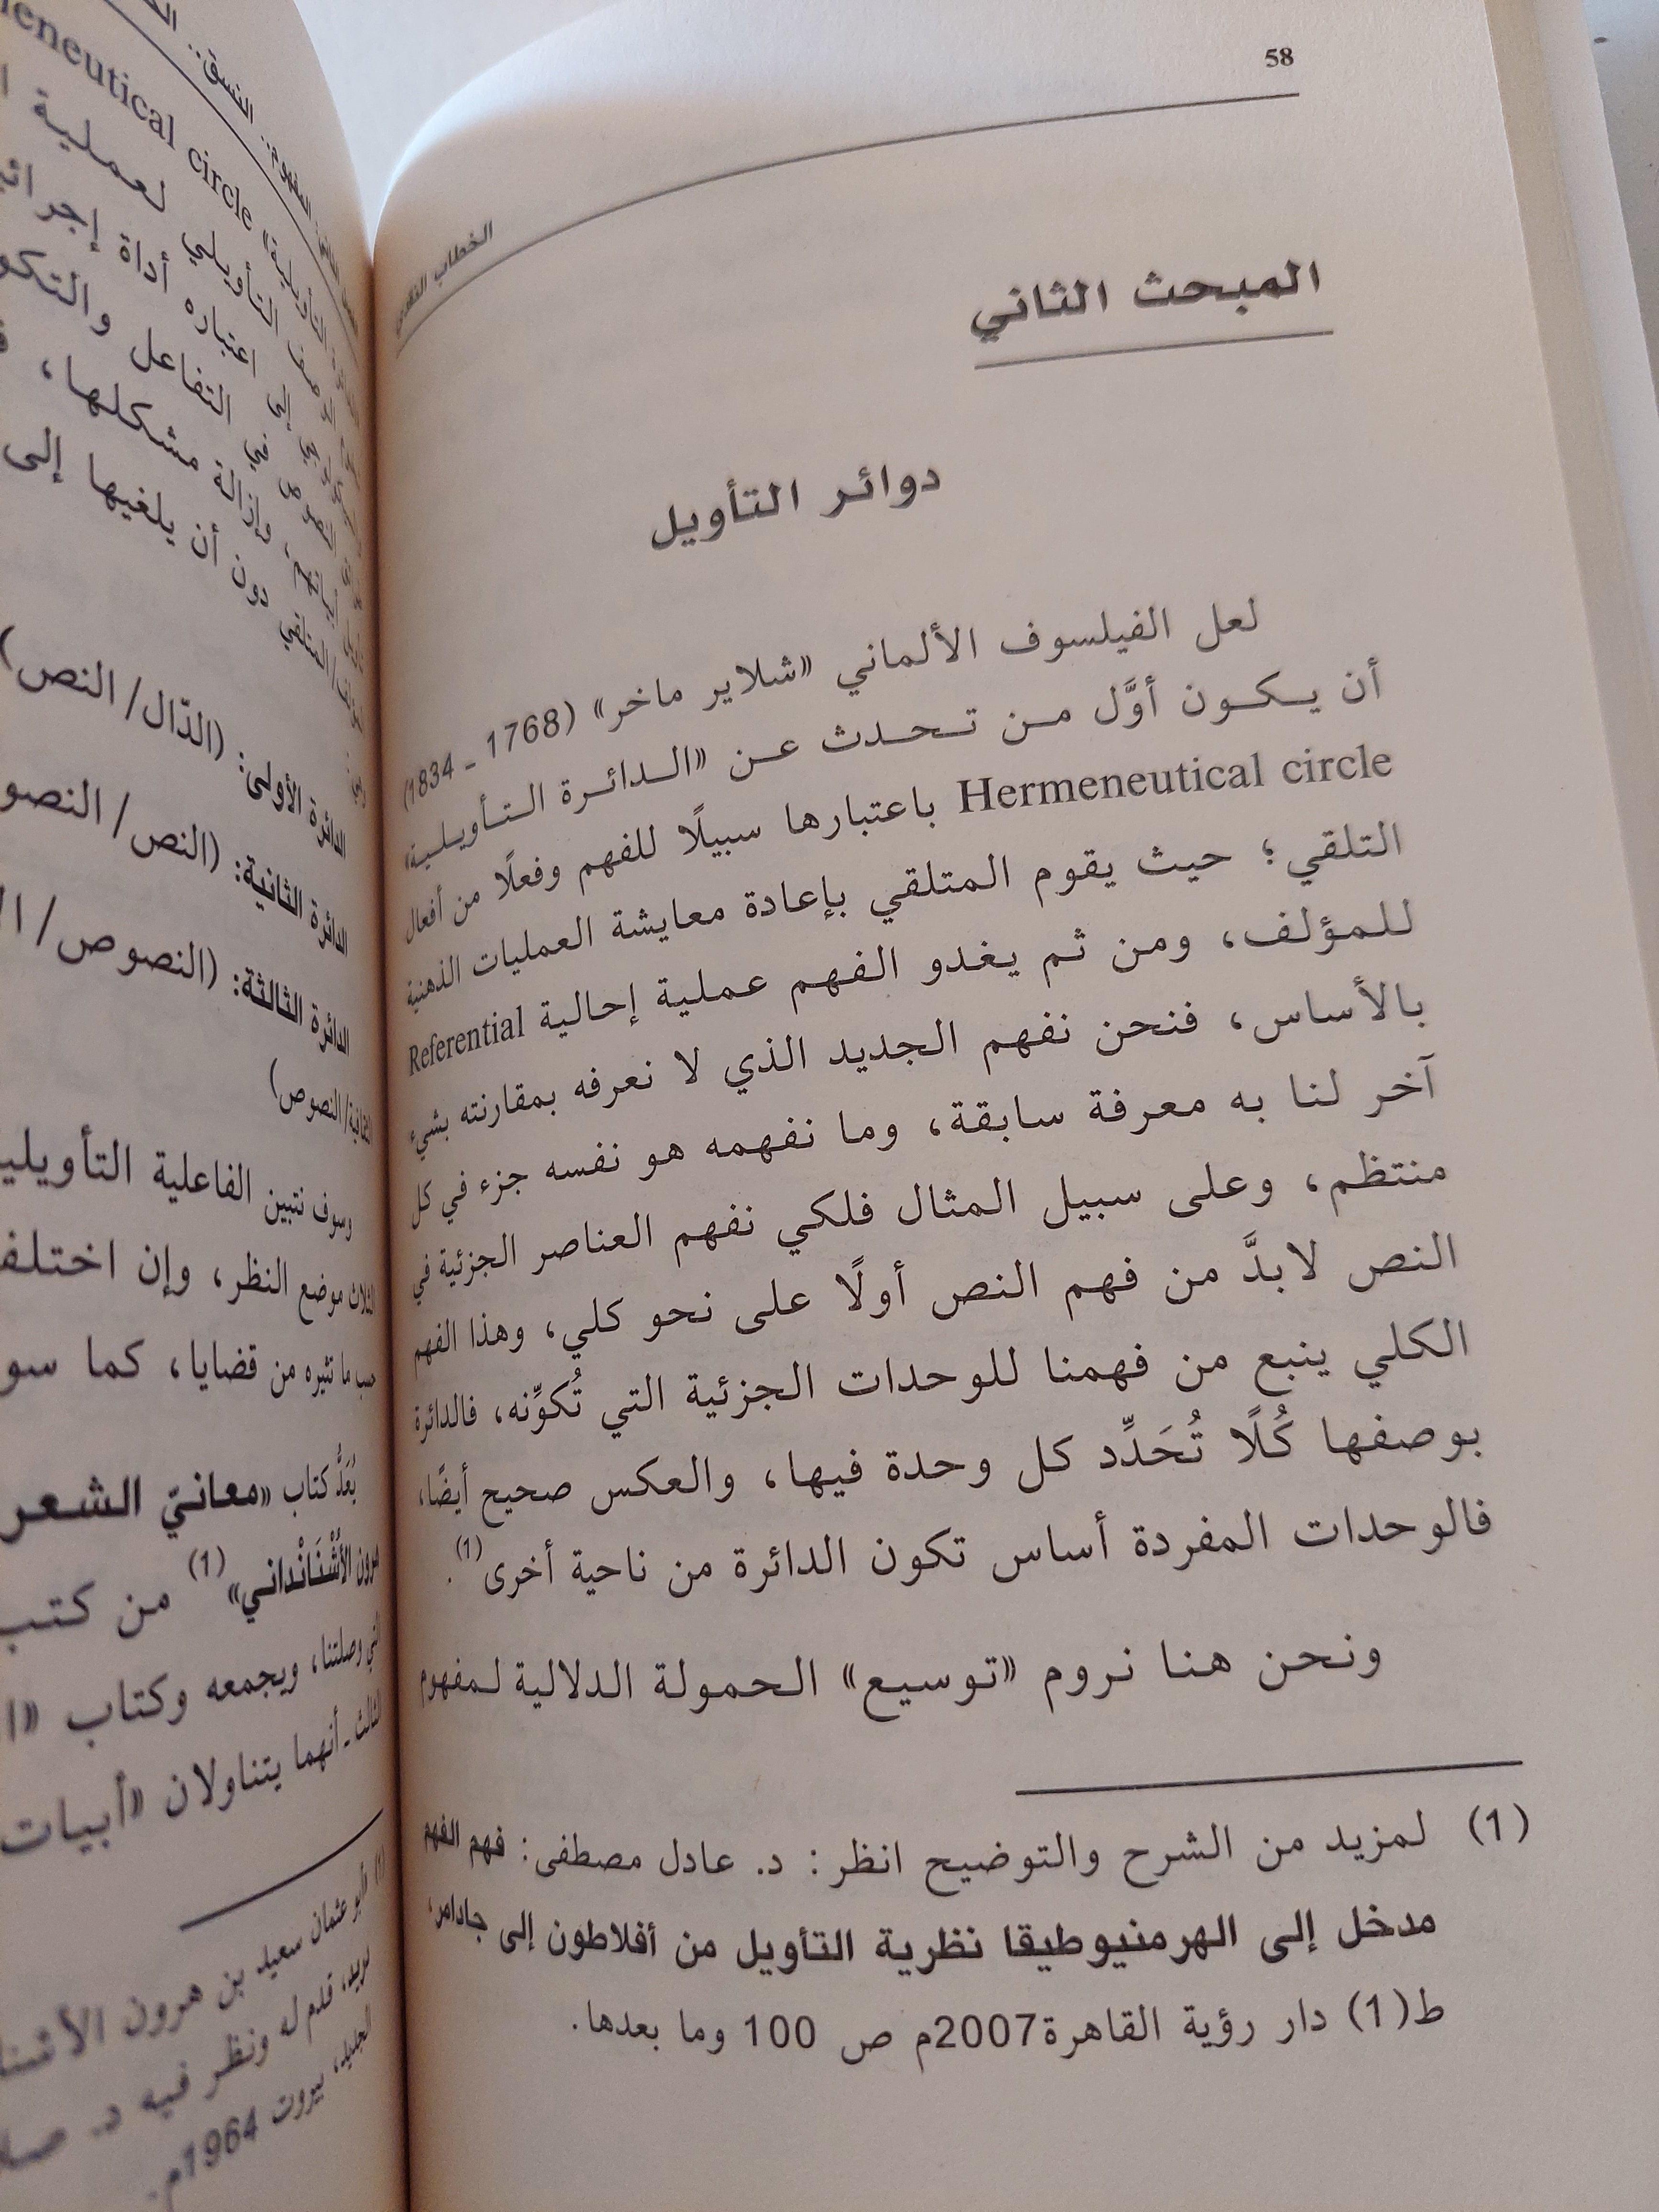 58
الخطاب النقدي
المبحث الثاني
دوائر التأويل
لعل الفيلسوف الألماني «شلاير ماخر» (1768 ـ 1834)
أن يكون أوَّل من تحدث عن «الدائرة التأويلية»
Hermeneutical circle باعتبارها سبيلًا للفهم وفعلًا من أفعال
التلقي؛ حيث يقوم المتلقي بإعادة معايشة العمليات الذهنية
للمؤلف، ومن ثم يغدو الفهم عملية إحالية Referential
بالأساس، فنحن نفهم الجديد الذي لا نعرفه بمقارنته بشيء
آخر لنا به معرفة سابقة، وما نفهمه هو نفسه جزء في كل
منتظم، وعلى سبيل المثال فلكي نفهم العناصر الجزئية في
النص لابدَّ من فهم النص أولًا على نحو كلي، وهذا الفهم
الكلي ينبع من فهمنا للوحدات الجزئية التي تُكوِّنه، فالدائرة
بوصفها كُلًا تُحَدِّد كل وحدة فيها، والعكس صحيح أيضًا،
فالوحدات المفردة أساس تكون الدائرة من ناحية أخرى(1).
ونحن هنا نروم «توسيع» الحمولة الدلالية لمفهوم
(1) لمزيد من الشرح والتوضيح انظر: د. عادل مصطفى: فهم الفهم
مدخل إلى الهرمنيوطيقا نظرية التأويل من أفلاطون إلى جادامر،
ط(1) دار رؤية القاهرة2007م ص 100 وما بعدها.
النسق..
circle التأويلية»
التأويلي لعملية
إلى اعتباره أداة
في التفاعل
وإزالة مشكلها،
المتلقي دون أن يلغيها إلى
الدائرة الأولى: (الدّال/ النص)
الدائرة الثانية: (النص/
الدائرة الثالثة: (النصوص/
النصوص)
وسوف نتبين الفاعلية
الثلاث موضع النظر، وإن
حسب ما تثيره من قضايا، كما
يُعَدُّ كتاب «معاني الشعر
هرون الأُشْنَانْداني»(1) من
التي وصلتنا، ويجمعه وكتاب
الثالث ـ أنهما يتناولان «أبيات
(1) أبو عثمان سعيد بن هرون
قدم له ونظر فيه د.
الجديد، بيروت 1964م.